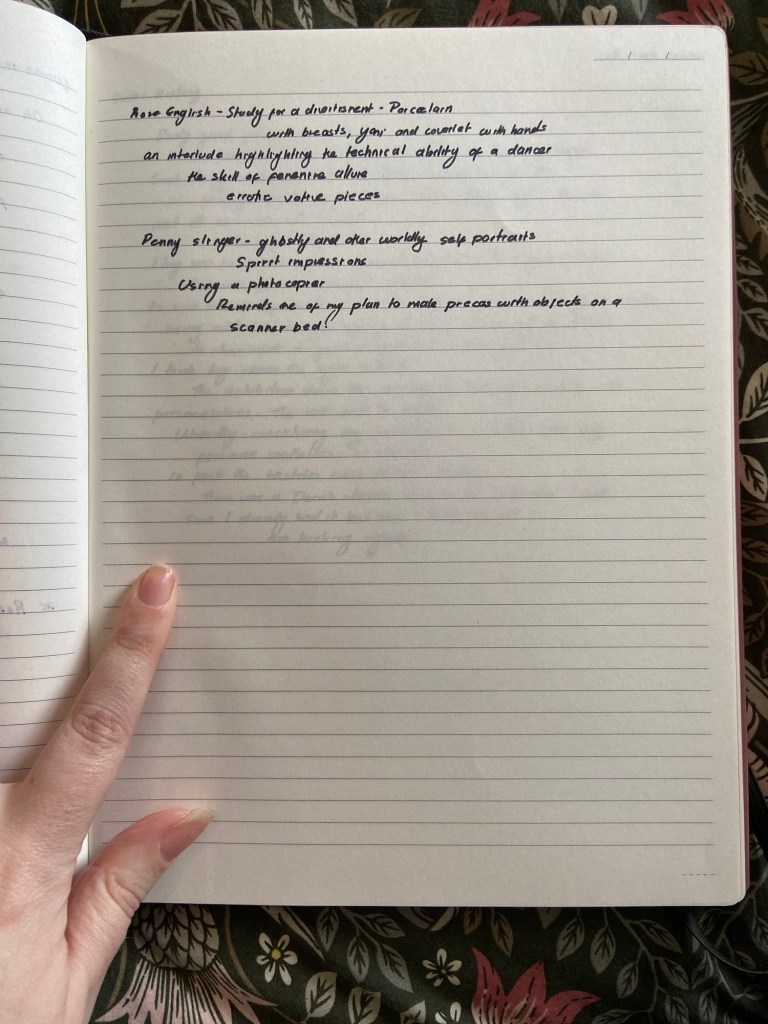 Rose English - Study for a divertisment - Porcelain
with breasts, yoni and coverlet with hands
an interlude highlighting the technical ability of a dancer
the skill of feminine allure
errotic votive pieces
Penny slinger - ghostly and other worldly self portraits
Spirit impressions
Using a photocopier
Reminds me of my plan to make pieces with objects on a
scanner bed!